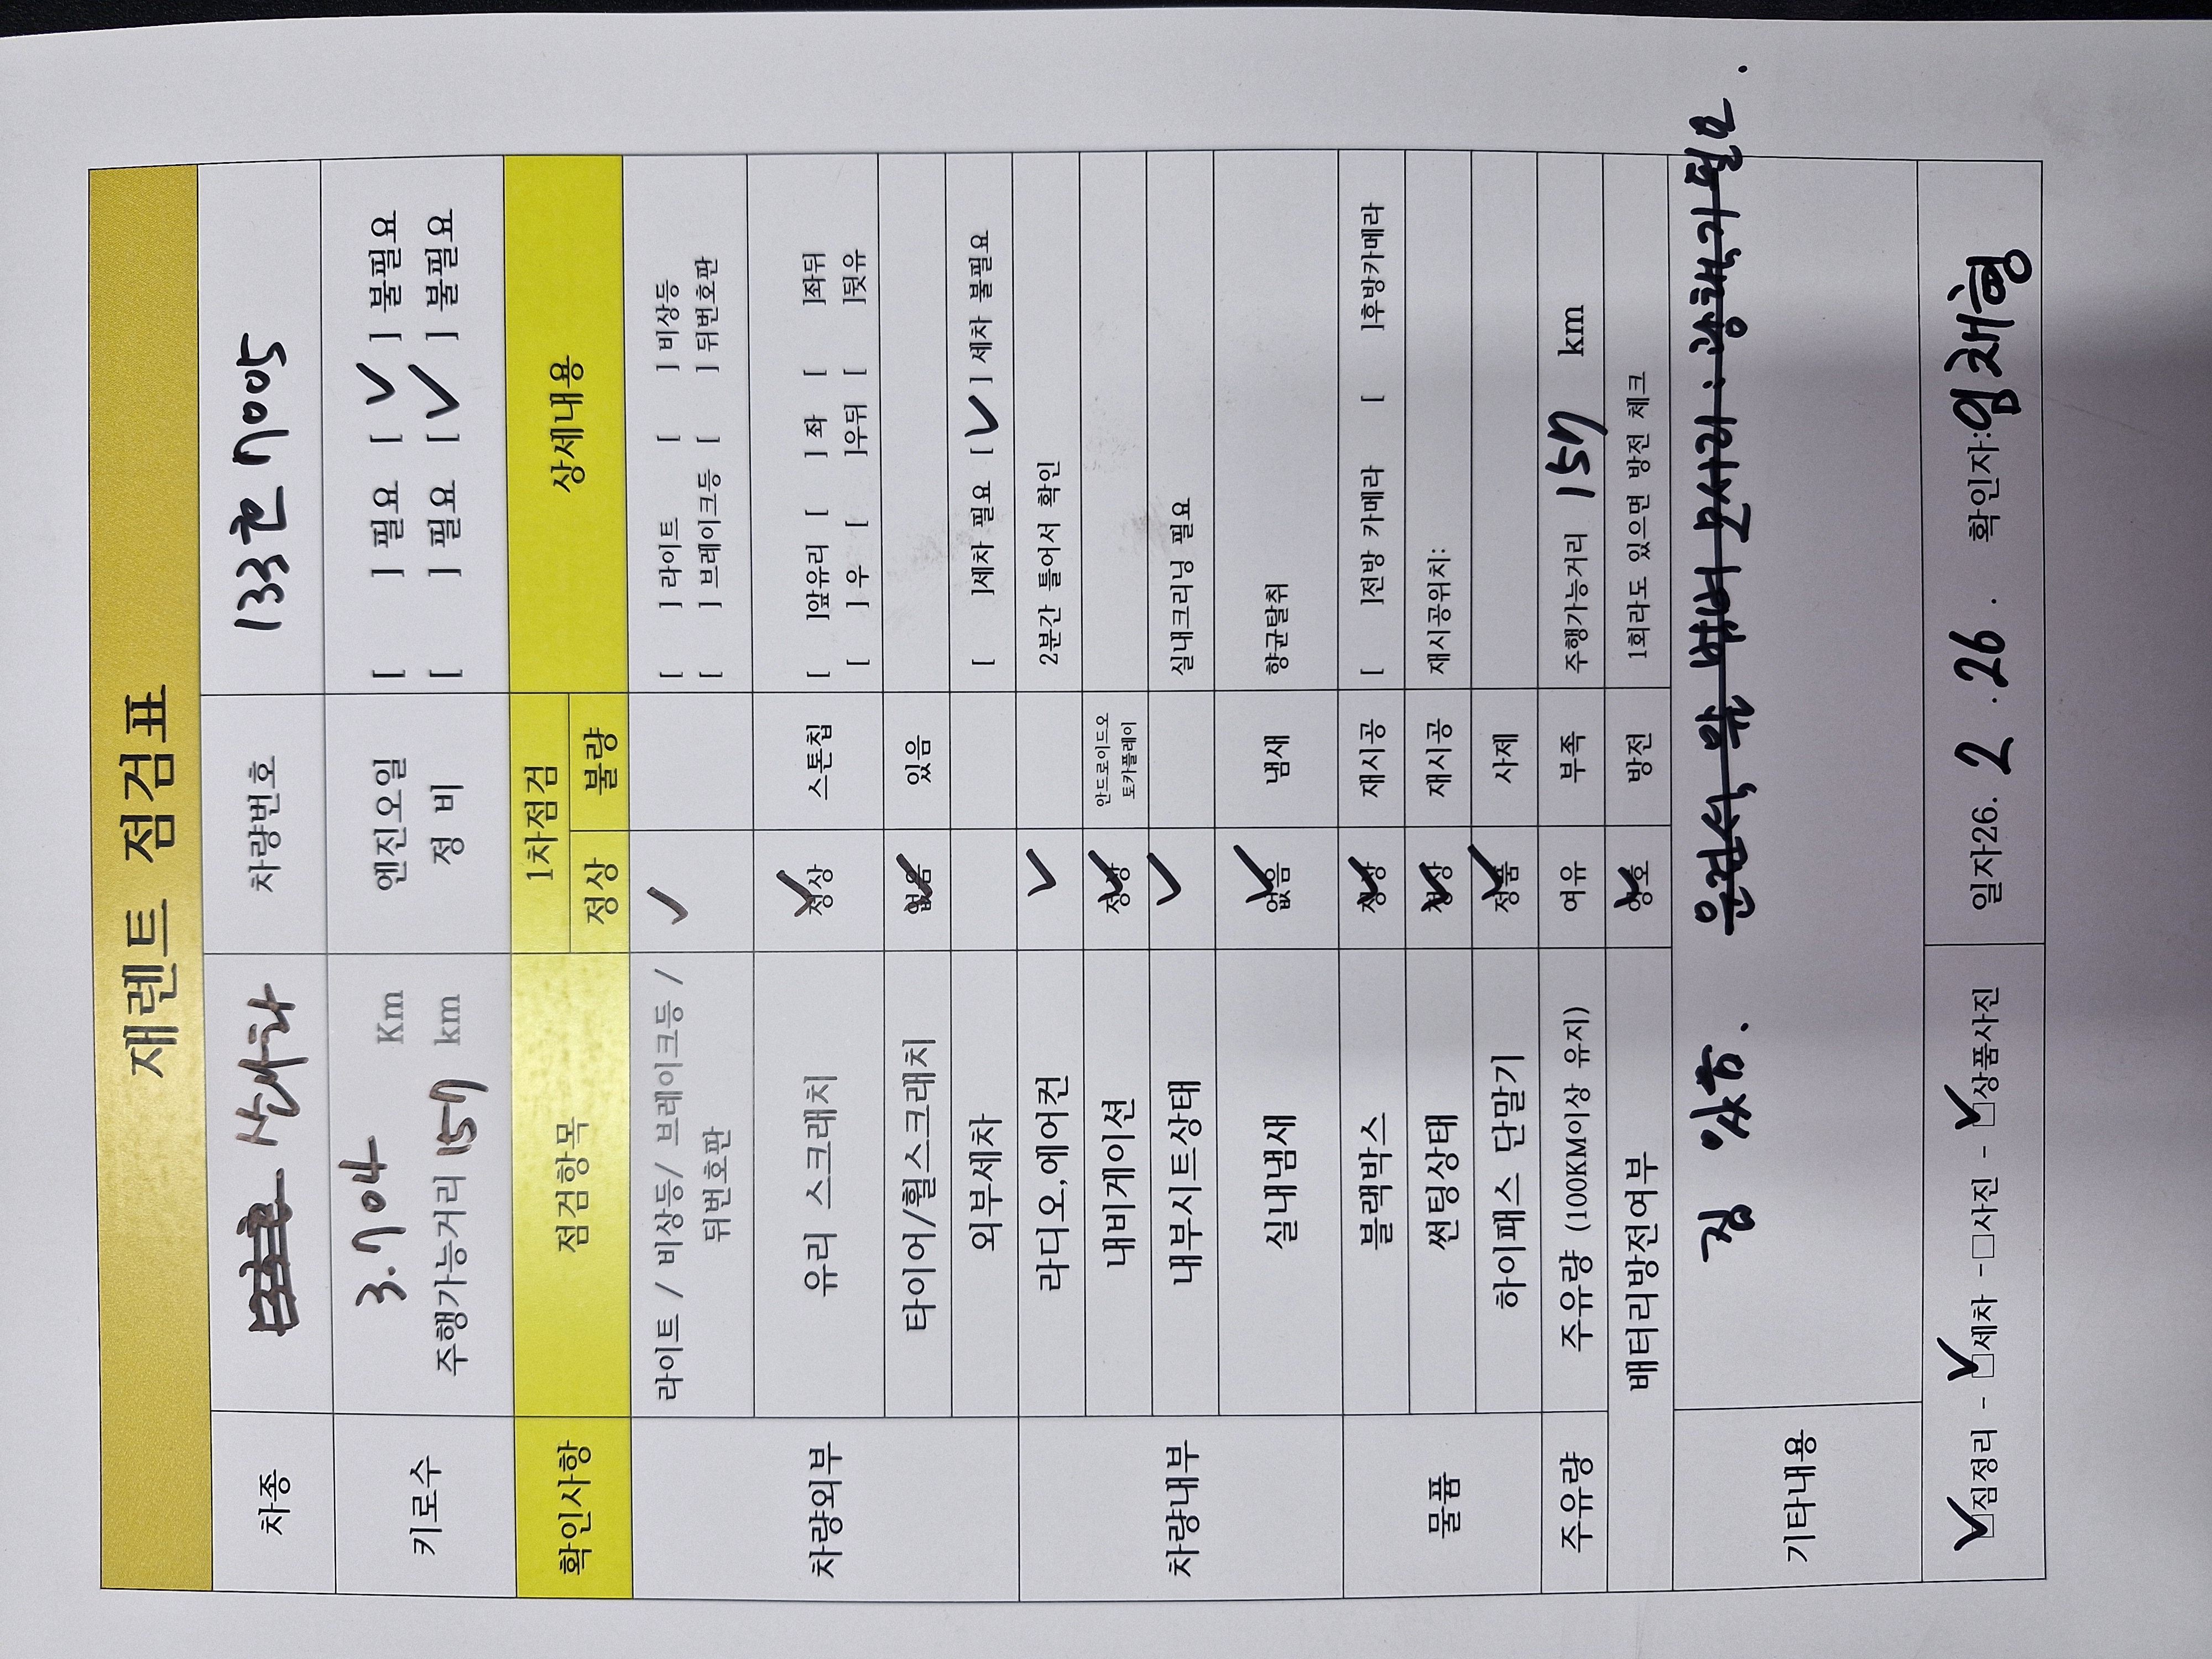 재렌트 점검표
차종 싼타 차량번호 133 7005
키로수 3.704 Km 엔진오일 [ ] 필요 [ ✓ ] 불필요
주행가능거리 157 km 정 비 [ ] 필요 [ ✓ ] 불필요
확인사항 점검항목 1차점검 상세내용
정상 불량
차량외부 라이트 / 비상등/ 브레이크등 / 뒤번호판 ✓ [ ] 라이트 [ ] 비상등
[ ] 브레이크등 [ ] 뒤번호판
유리 스크래치 정상 ✓ 스톤칩 [ ]앞유리 [ ] 좌 [ ]좌뒤
[ ] 우 [ ]우뒤 [ ]뒷유
타이어/휠스크래치 없음 ✓ 있음
외부세차 [ ]세차 필요 [ ✓ ] 세차 불필요
차량내부 라디오,에어컨 ✓ 2분간 틀어서 확인
내비게이션 정상 ✓ 안드로이드오토카플레이
내부시트상태 ✓ 실내크리닝 필요
실내냄새 없음 ✓ 냄새 향균탈취
물품 블랙박스 정상 ✓ 재시공 [ ]전방 카메라 [ ]후방카메라
썬팅상태 정상 ✓ 재시공 재시공위치:
하이패스 단말기 정품 ✓ 사제
주유량 주유량 (100KM이상 유지) 여유 부족 주행가능거리 157 km
배터리방전여부 양호 ✓ 방전 1회라도 있으면 방전 체크
기타내용 짐 있음. 운전석, 앞 범퍼 모서리 : 광택기 필요.
☑짐정리 - ☑세차 - □사진 - ☑상품사진 일자26. 2 . 26 . 확인자:엄재형